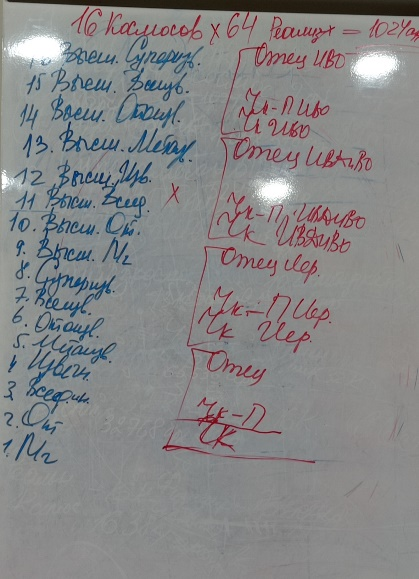 16 Космосов × 64 Реализ = 1024
16 Высш. Суперизв.
15 Высш. Всеизв.
14 Высш. Октоизв.
13. Высш. Метаизв.
12 Высш. Изв.
11 Высш. Всеед.
10. Высш. Ок.
9. Высш. Мг
8. Суперизв.
7. Всеизв.
6. Октоизв.
5. Метаизв.
4
3. Всеедин.
2. Ок
1. Мг
×
Отец ИВО
Чк-П ИВО
Чк ИВО
Отец
Чк-П
Чк
Отец Иер.
Чк-П Иер.
Чк Иер.
Отец
Чк-П
Чк